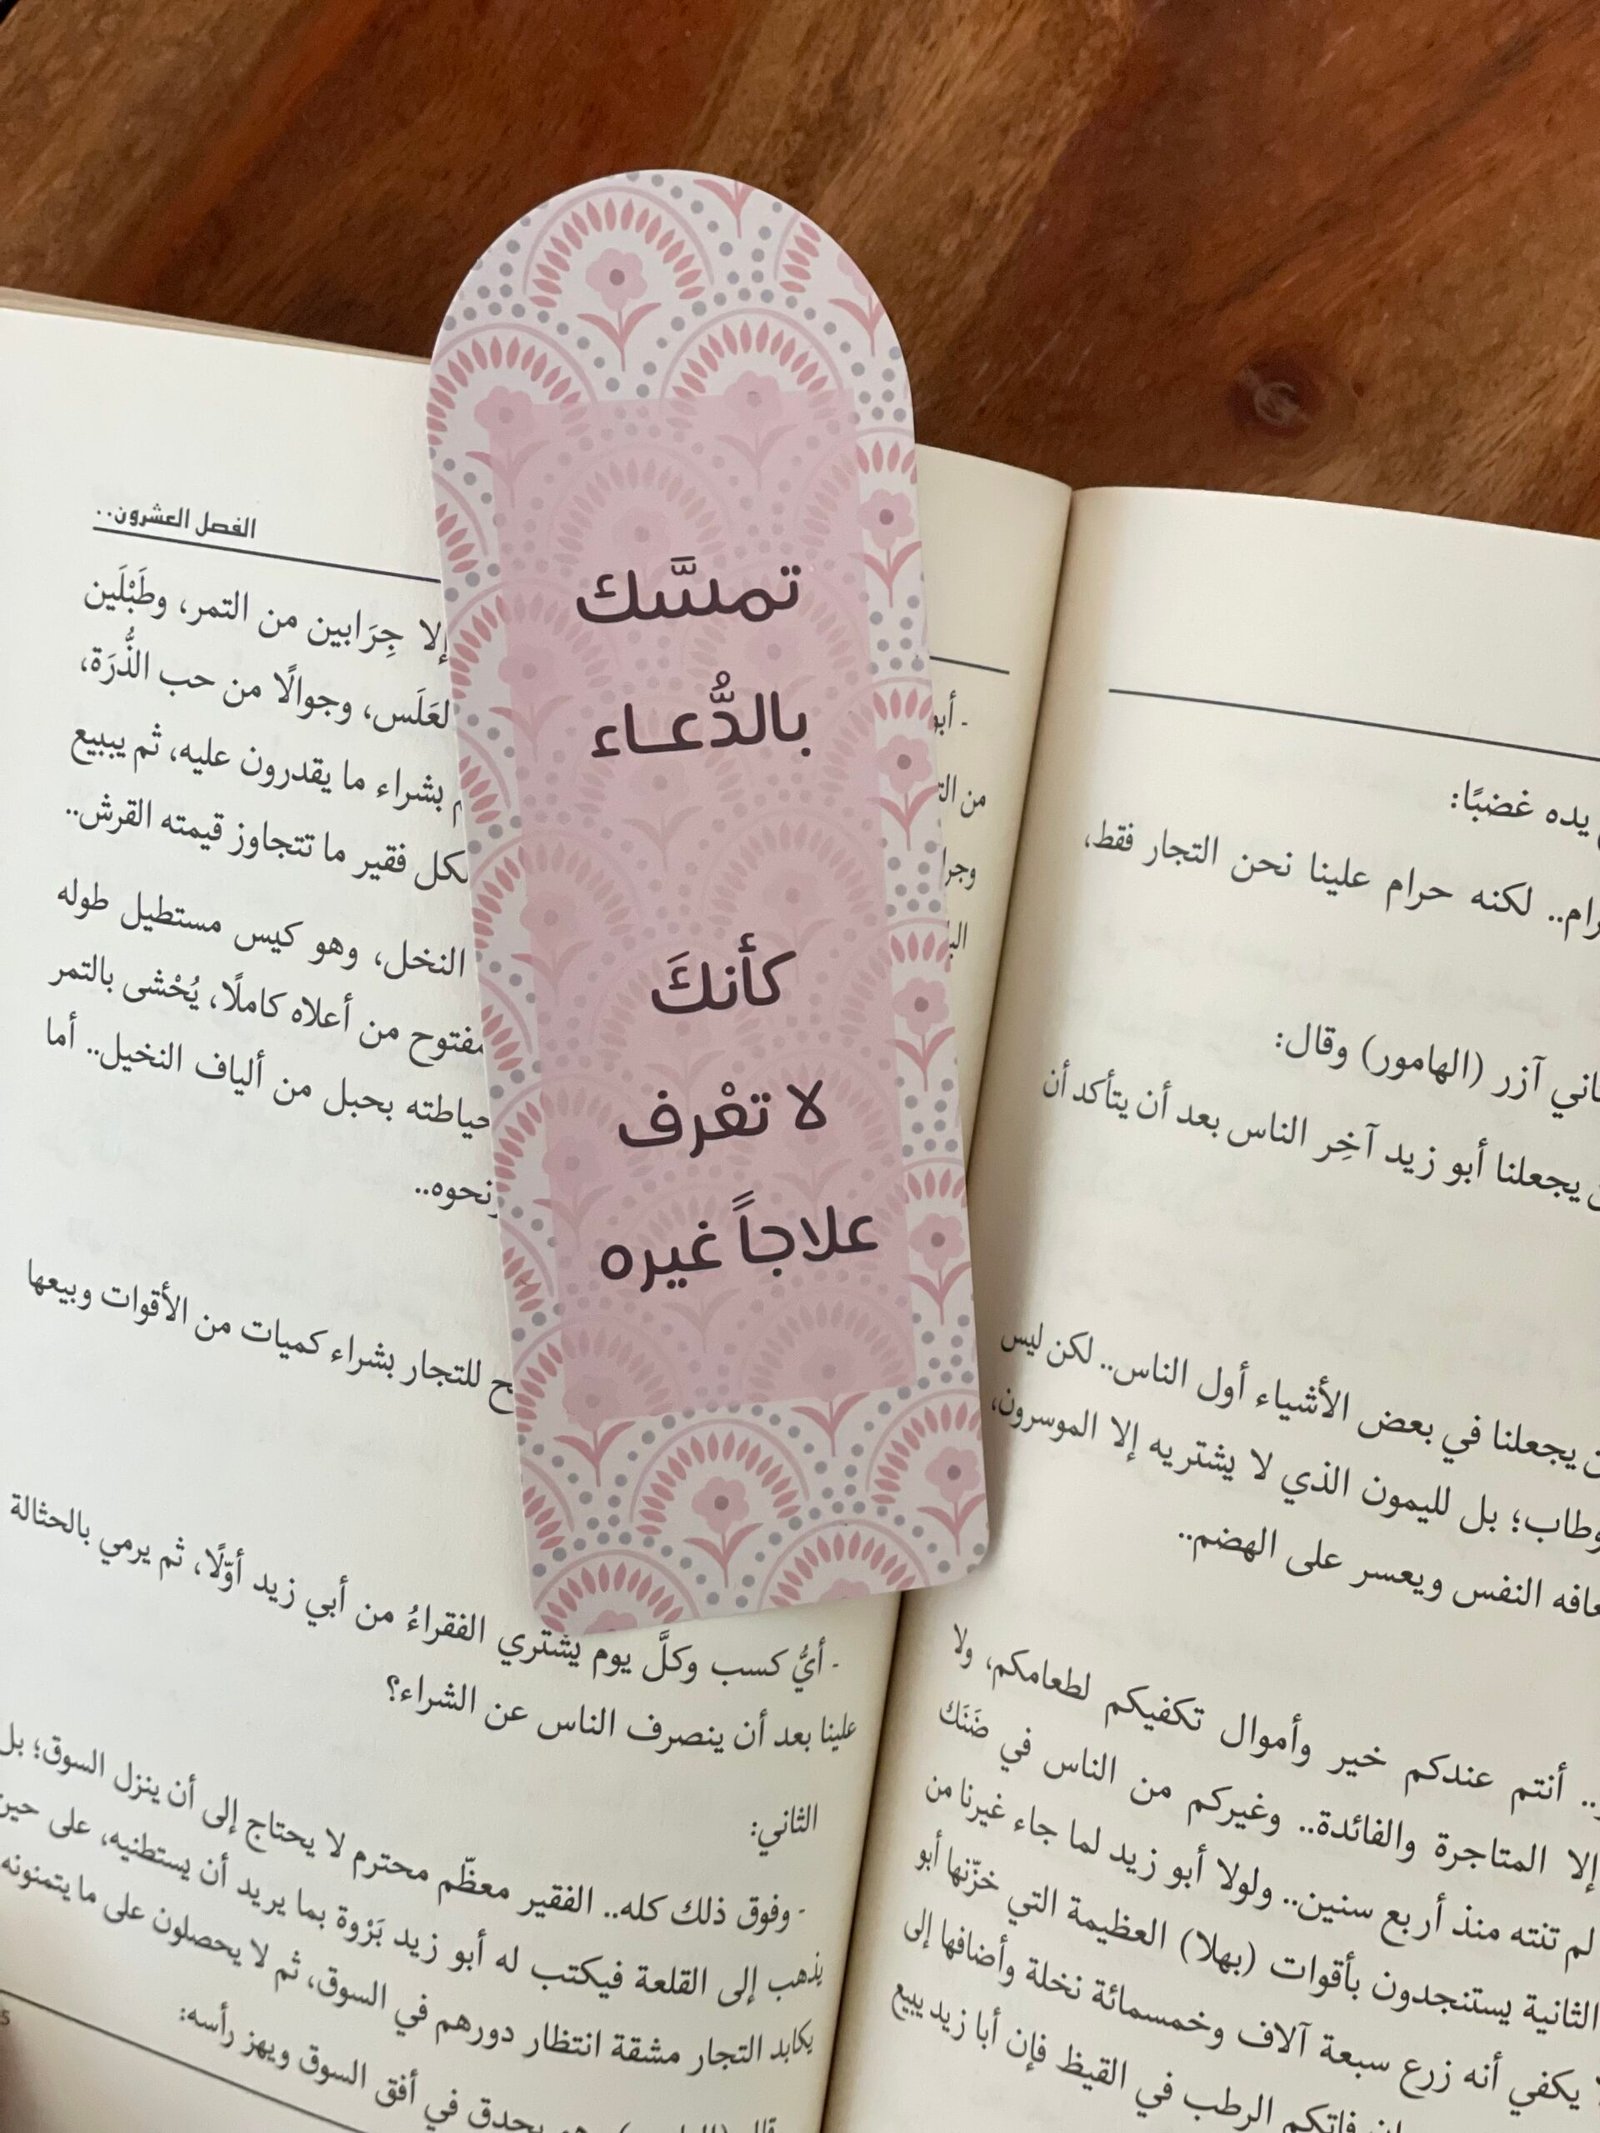 تمسَّك
بالدُّعـاء
كأنكَ
لا تعْرف
علاجاً غيره
الفصل العشرون..
إلا جِرَابين من التمر، وطَبْلَين
لعَلَس، وجوالًا من حب الذُّرَة،
بشراء ما يقدرون عليه، ثم يبيع
لكل فقير ما تتجاوز قيمته القرش..
النخل، وهو كيس مستطيل طوله
مفتوح من أعلاه كاملًا، يُحْشى بالتمر
حياطته بحبل من ألياف النخيل.. أما
ونحوه..
للتجار بشراء كميات من الأقوات وبيعها
- أيُّ كسب وكلَّ يوم يشتري الفقراءُ من أبي زيد أوّلًا، ثم يرمي بالحثالة
علينا بعد أن ينصرف الناس عن الشراء؟
الثاني:
- وفوق ذلك كله.. الفقير معظّم محترم لا يحتاج إلى أن ينزل السوق؛ بل
يذهب إلى القلعة فيكتب له أبو زيد بَرْوة بما يريد أن يستطنيه، على حين
يكابد التجار مشقة انتظار دورهم في السوق، ثم لا يحصلون على ما يتمنونه
يحدق في أفق السوق ويهز رأسه:
- أبو
من
يده غضبًا:
لكنه حرام علينا نحن التجار فقط،
آزر (الهامور) وقال:
يجعلنا أبو زيد آخِر الناس بعد أن يتأكد أن
يجعلنا في بعض الأشياء أول الناس.. لكن ليس
بل لليمون الذي لا يشتريه إلا الموسرون،
النفس ويعسر على الهضم..
أنتم عندكم خير وأموال تكفيكم لطعامكم، ولا
إلا المتاجرة والفائدة.. وغيركم من الناس في ضَنَك
لم تنته منذ أربع سنين.. ولولا أبو زيد لما جاء غيرنا من
الثانية يستنجدون بأقوات (بهلا) العظيمة التي خزّنها أبو
يكفي أنه زرع سبعة آلاف وخمسمائة نخلة وأضافها إلى
فاتكم الرطب في القيظ فإن أبا زيد يبيع